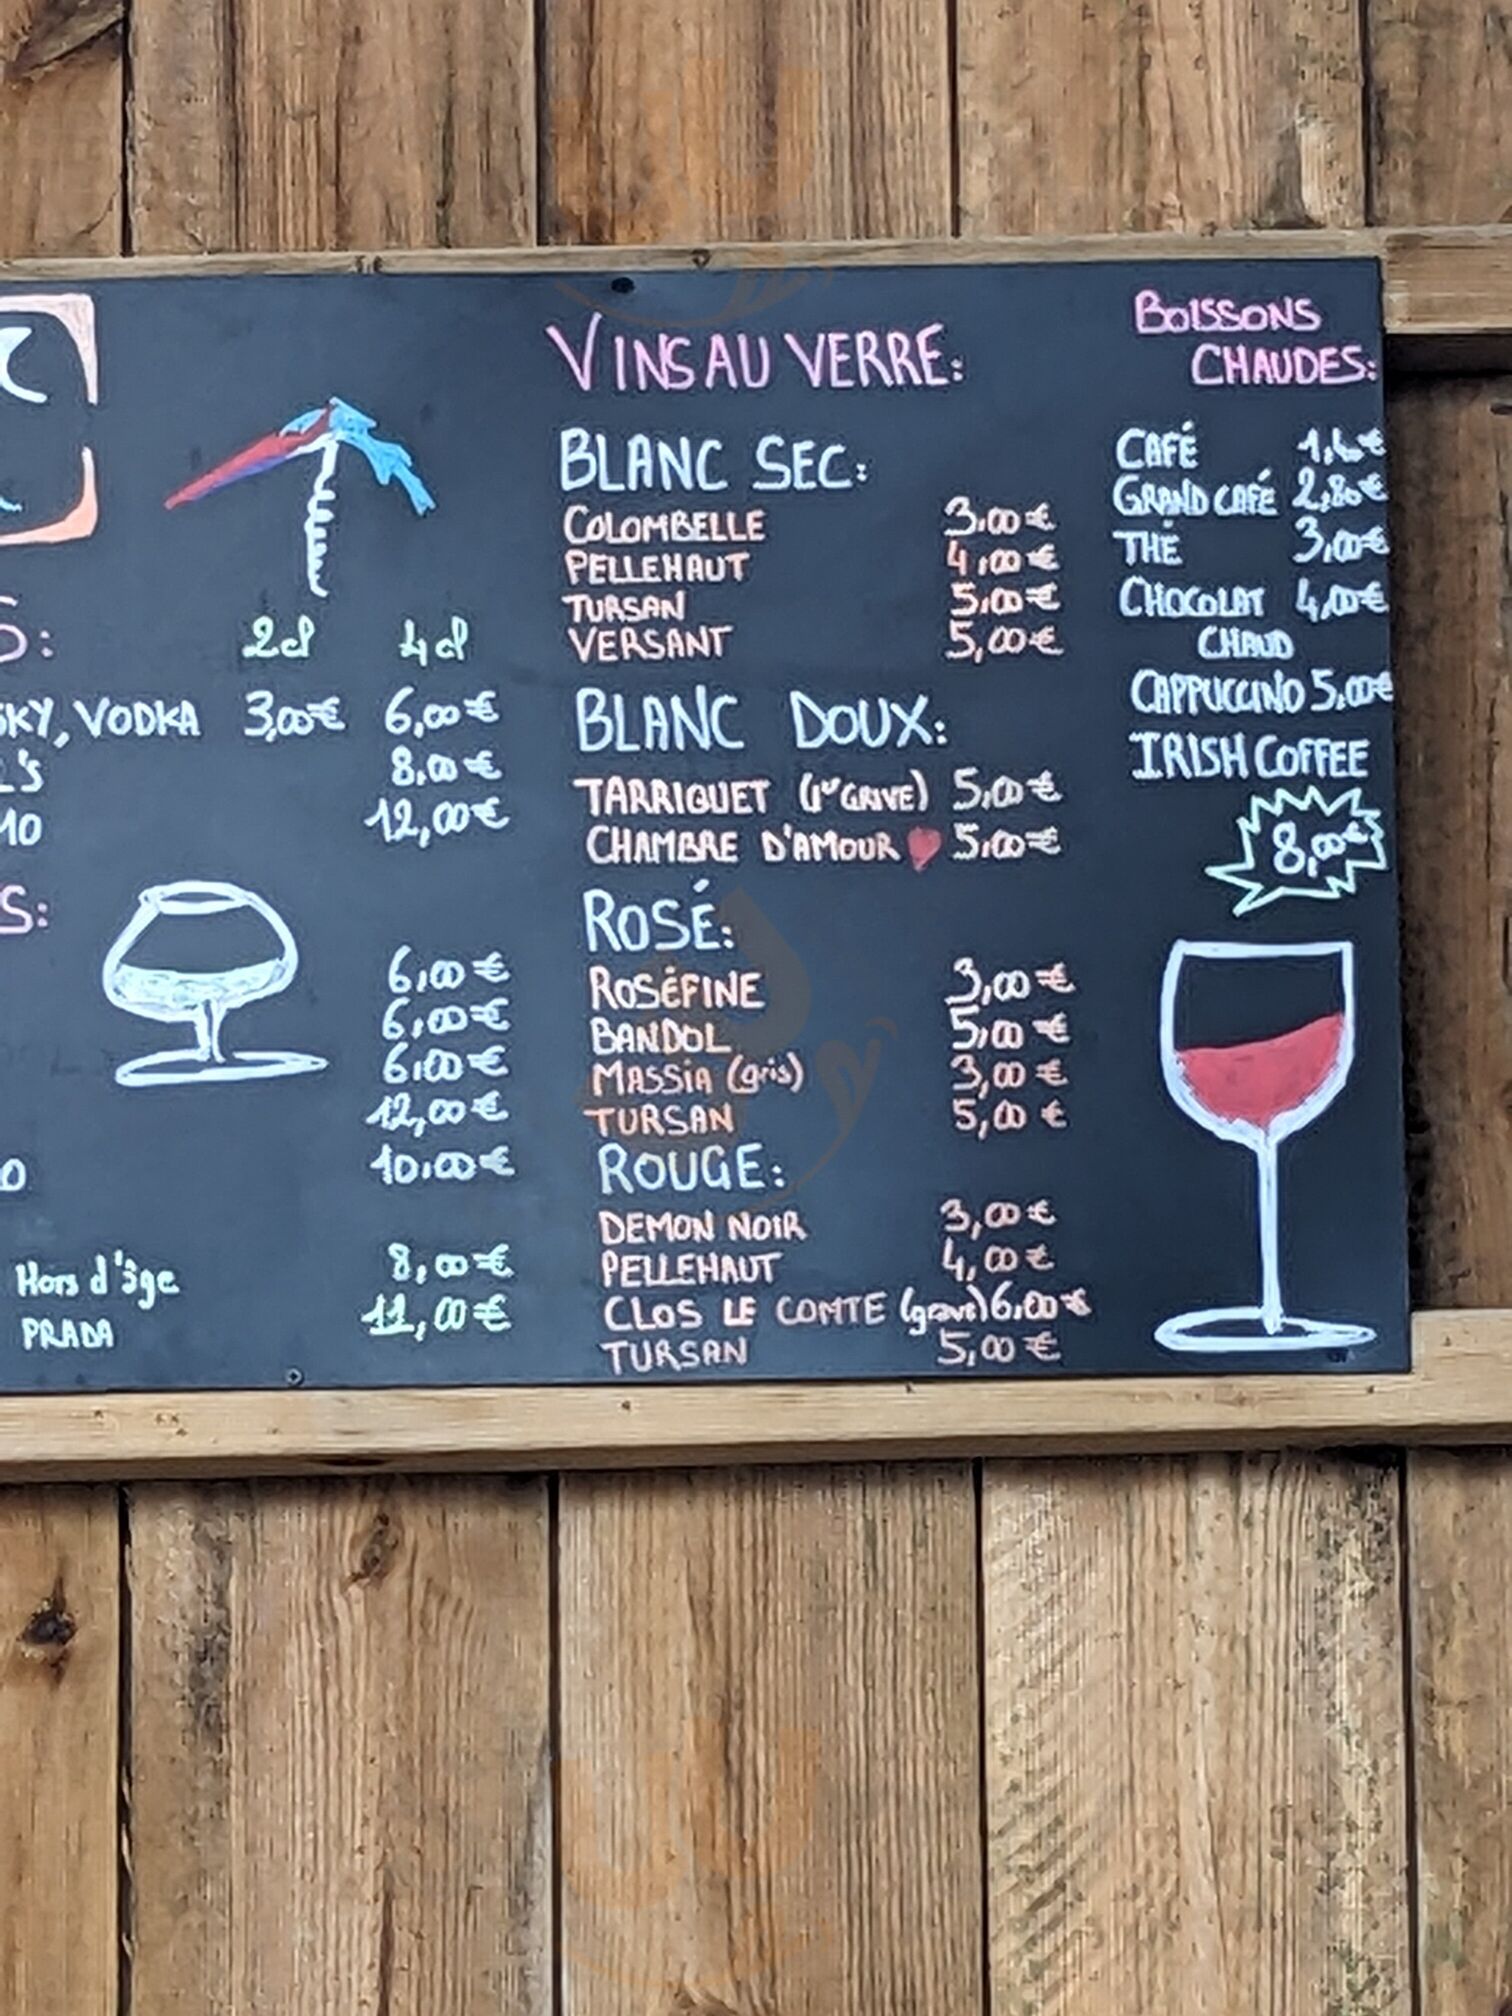 2cl 4cl
VODKA 3,00€ 6,00€
8,00€
12,00€
6,00€
6,00€
6,00€
12,00€
10,00€
Hors d'âge 8,00€
PRADA 11,00€
VINS AU VERRE:
BLANC SEC:
COLOMBELLE 3,00€
PELLEHAUT 4,00€
TURSAN 5,00€
VERSANT 5,00€
BLANC DOUX:
TARRIQUET (1er GRIVE) 5,00€
CHAMBRE D'AMOUR 5,00€
ROSÉ:
ROSÉFINE 3,00€
BANDOL 5,00€
MASSIA (gris) 3,00€
TURSAN 5,00€
ROUGE:
DEMON NOIR 3,00€
PELLEHAUT 4,00€
CLOS LE COMTE 6,00€
TURSAN 5,00€
BOISSONS
CHAUDES:
CAFÉ
GRAND CAFÉ 2,80€
THÉ 3,00€
CHOCOLAT 4,00€
CHAUD
CAPPUCCINO 5,00€
IRISH COFFEE
8,00€